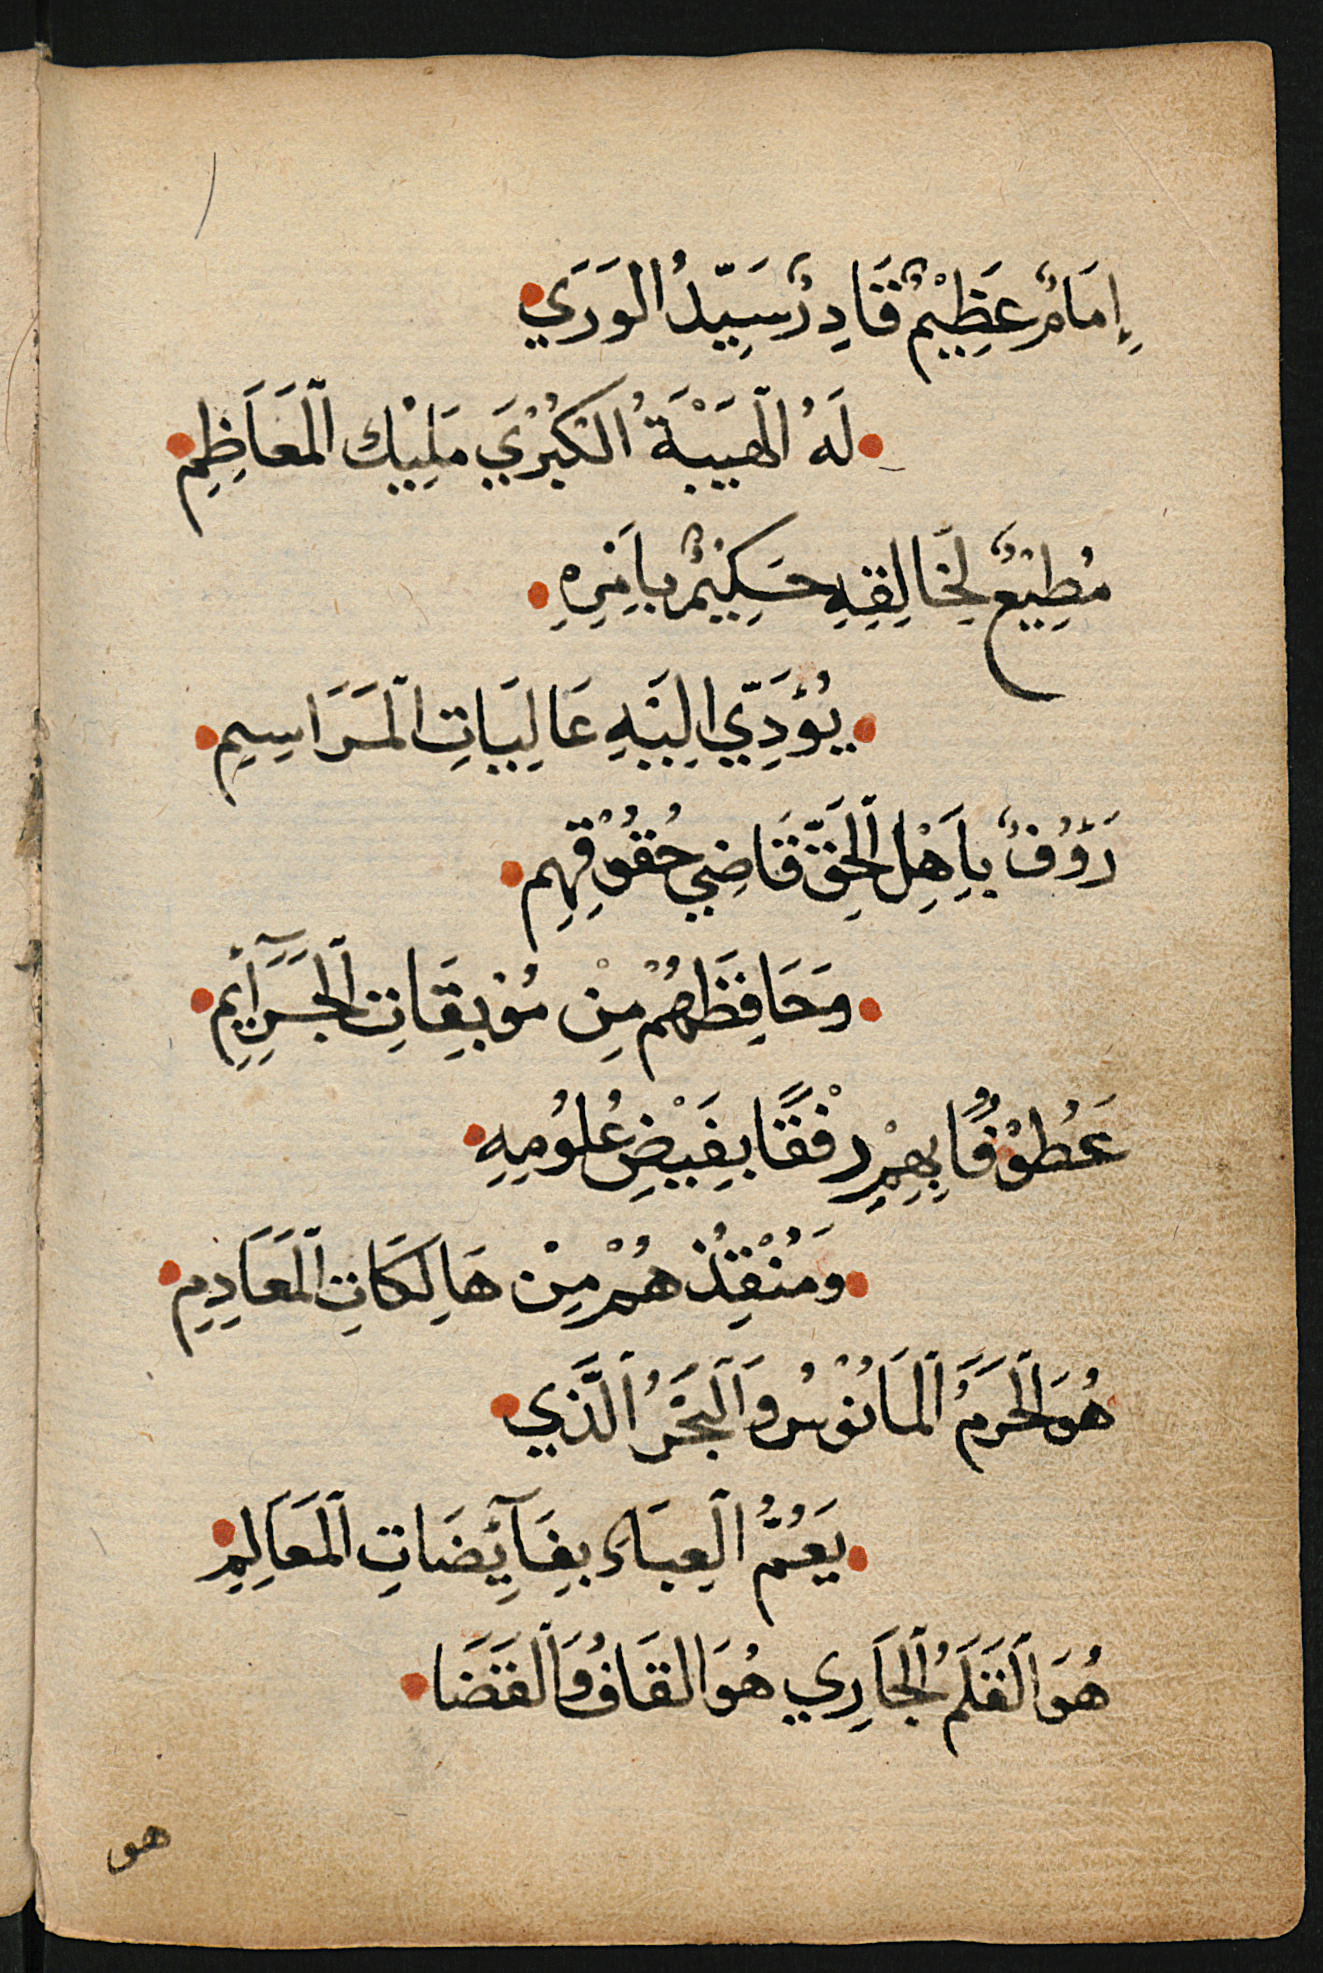 إِمَامٌ عَظِيْمٌ قَادِرٌ سَيِّدُ الوَرَي
لَهُ الْهَيْبَةُ الكُبْرَي مَلِيْكِ الْمَعَاظِمِ
مُطِيْعٌ لِخَالِقِهِ حَكِيْمٌ بِاَمْرِهِ
يُؤَدِّي اِلَيْهِ عَالِيَاتِ الْمَرَاسِمِ
رَؤُفٌ بِاَهْلِ الْحَقِّ قَاضِي حُقُوْقِهِمِ
وَحَافِظُهُمْ مِنْ مُوْبِقَاتِ الْجَرَآئِمِ
عَطُوْفًا بِهِمْ رِفْقًا بِفَيْضِ عُلُومِهِ
وَمُنْقِذُهُمْ مِنْ هَالِكَاتِ الْمَعَادِمِ
هُوَ الْحَرَمُ الْمَأنُوْسُ وَالْبَحْرُ الَّذِي
يَعُمُّ الْعِبَاد بِفَآئِضَاتِ الْمَعَالِمِ
هُوَ الْقَلَمُ الْجَارِي هُوَ القَافُ وَالْقَضَا
هو